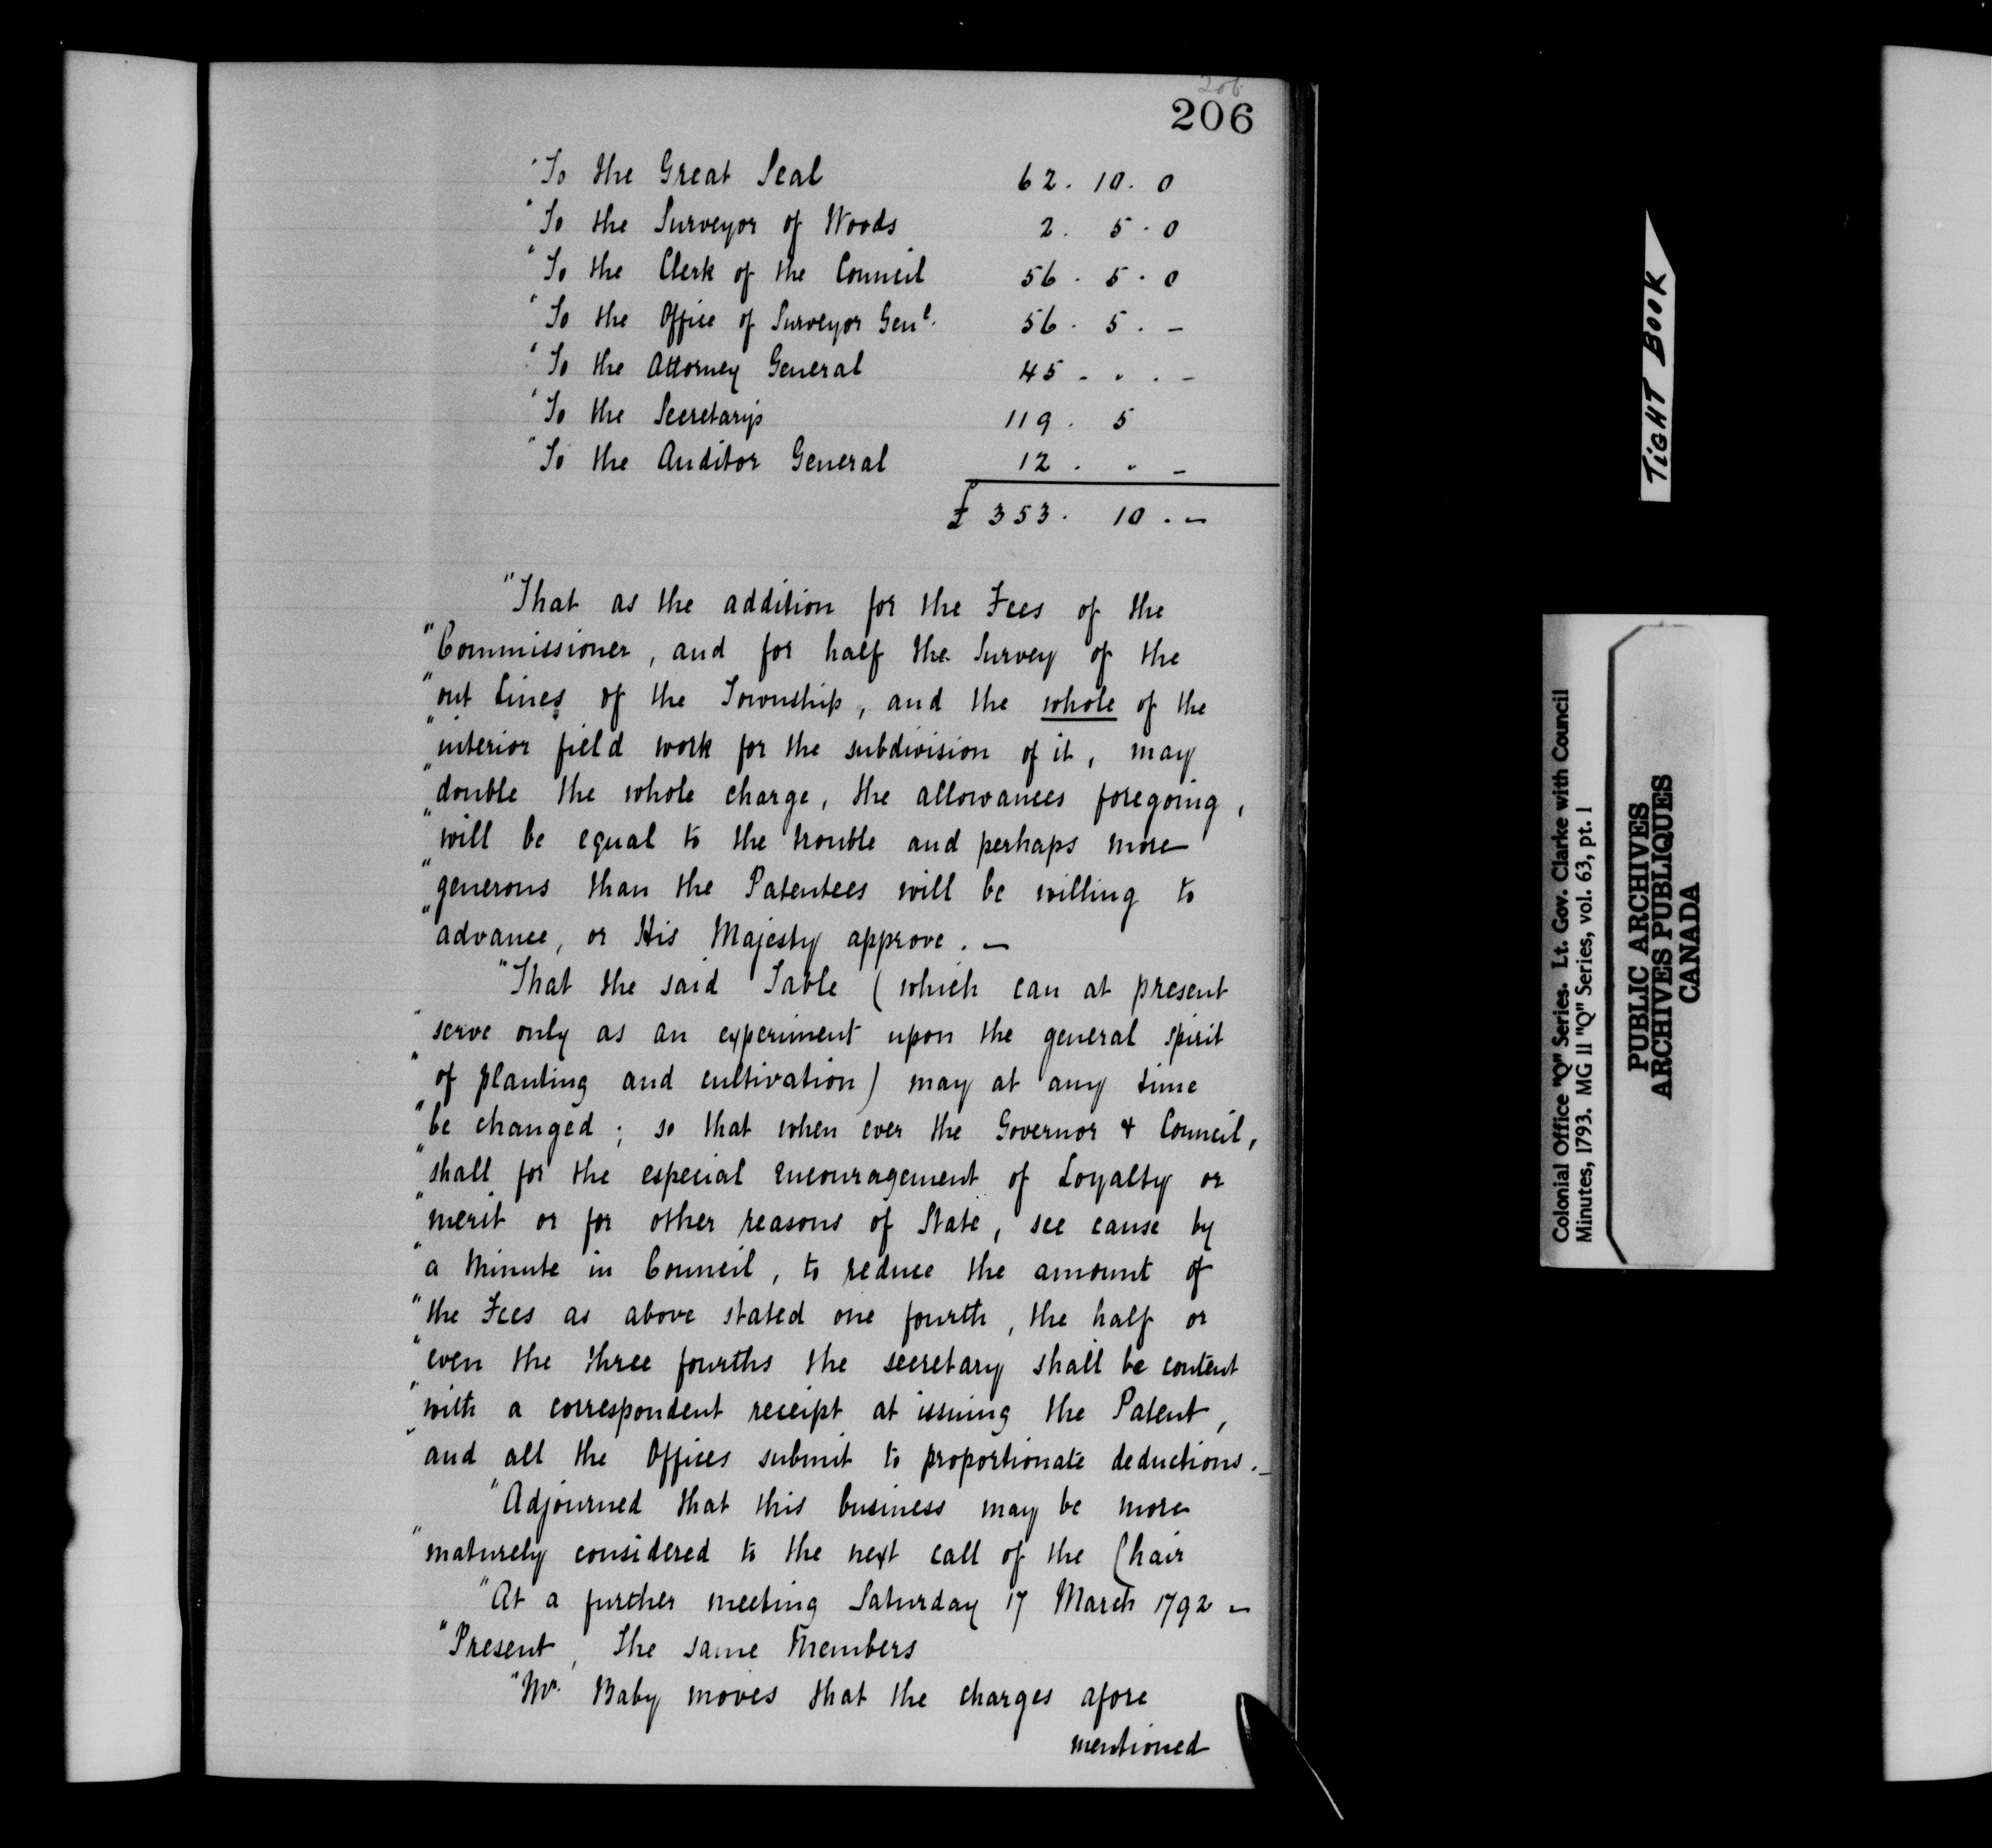 206
206
"To the Great Seal 62. 10. 0
"To the Surveyor of Woods 2. 5. 0
"To the Clerk of the Council 56. 5. 0
"To the Office of Surveyor Genl. 56. 5. –
"To the Attorney General 45 - " . –
"To the Secretary's 119. 5
"To the Auditor General 12. " –
£ 353. 10. –
"That as the addition for the Fees of the
"Commissioner, and for half the Survey of the
"out Lines of the Township, and the whole of the
"interior field work for the subdivision of it, may
"double the whole charge, the allowances foregoing,
"will be equal to the trouble and perhaps more
"generous than the Patentees will be willing to
"advance, or His Majesty approve. –
"That the said Table (which can at present
"serve only as an experiment upon the general spirit
"of planting and cultivation) may at any time
"be changed; so that when ever the Governor & Council,
"shall for the especial encouragement of Loyalty or
"merit or for other reasons of State, see cause by
"a Minute in Council, to reduce the amount of
"the Fees as above stated one fourth, the half or
"even the three fourths the secretary shall be content
"with a correspondent receipt at issuing the Patent,
"and all the Offices submit to proportionate deductions. –
"Adjourned that this business may be more
"maturely considered to the next call of the Chair
"At a further meeting Saturday 17 March 1792 –
"Present, The same Members
"Mr. Baby moves that the charges afore
mentioned
TIGHT BOOK
Colonial Office "Q" Series. Lt. Gov. Clarke with Council
Minutes, 1793. MG 11 "Q" Series, vol. 63, pt. 1
PUBLIC ARCHIVES
ARCHIVES PUBLIQUES
CANADA